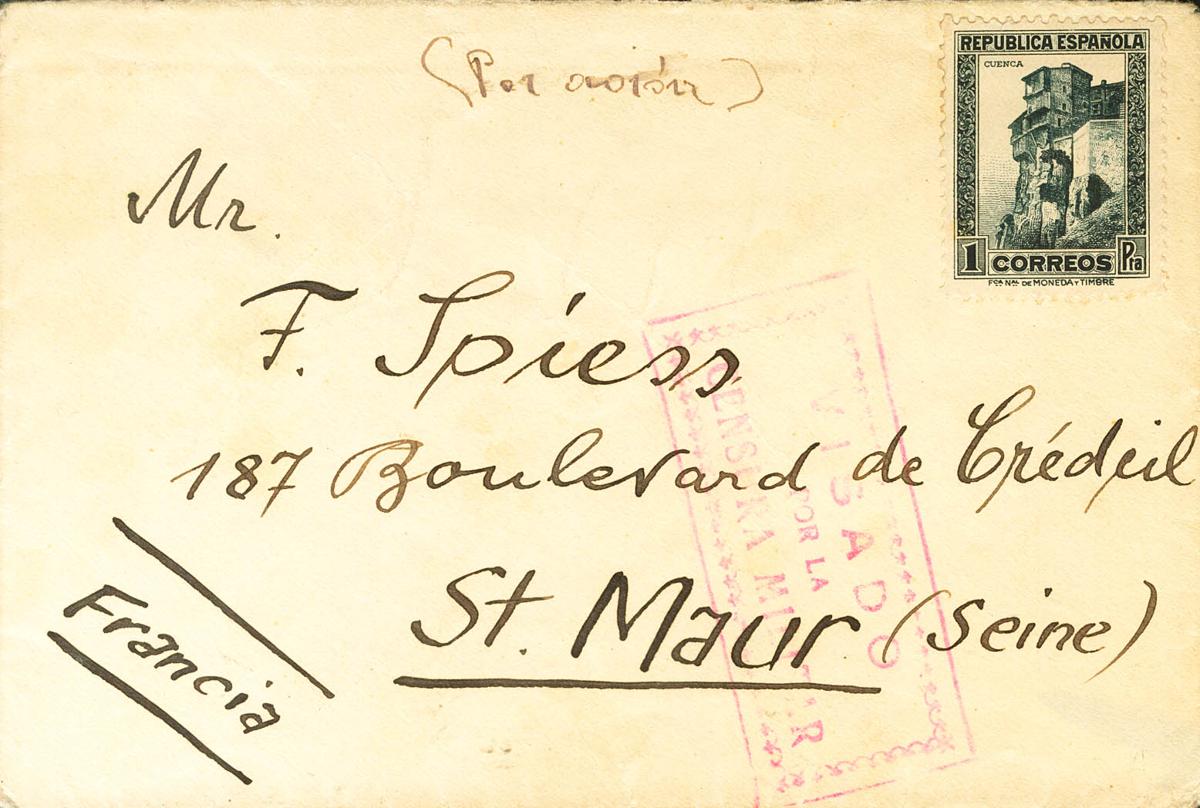 (Por avión)
REPUBLICA ESPAÑOLA
CUENCA
1 CORREOS Pta
FCA NAL DE MONEDA Y TIMBRE
Mr.
F. Spiess
187 Boulevard de Crédeil
St. Maur (Seine)
Francia
VISADO
POR LA
CENSURA MILITAR